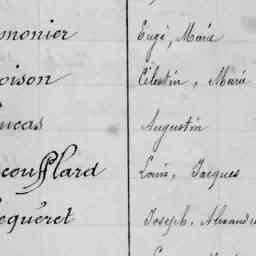 monier Eugé, Marie
oison Célestin, Marie
ucas Augustin
coufflard Louis, Jacques
equéret Joseph, Alexandre